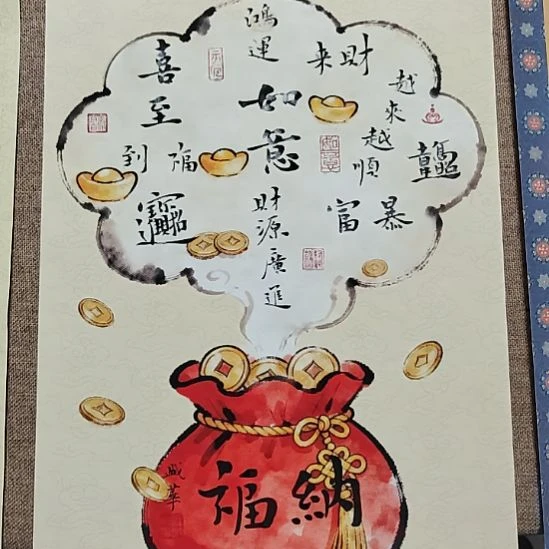 鴻運
喜至
財来
越來越順
如意
福到
招財進寶
暴富
財源廣進
納福
盛華